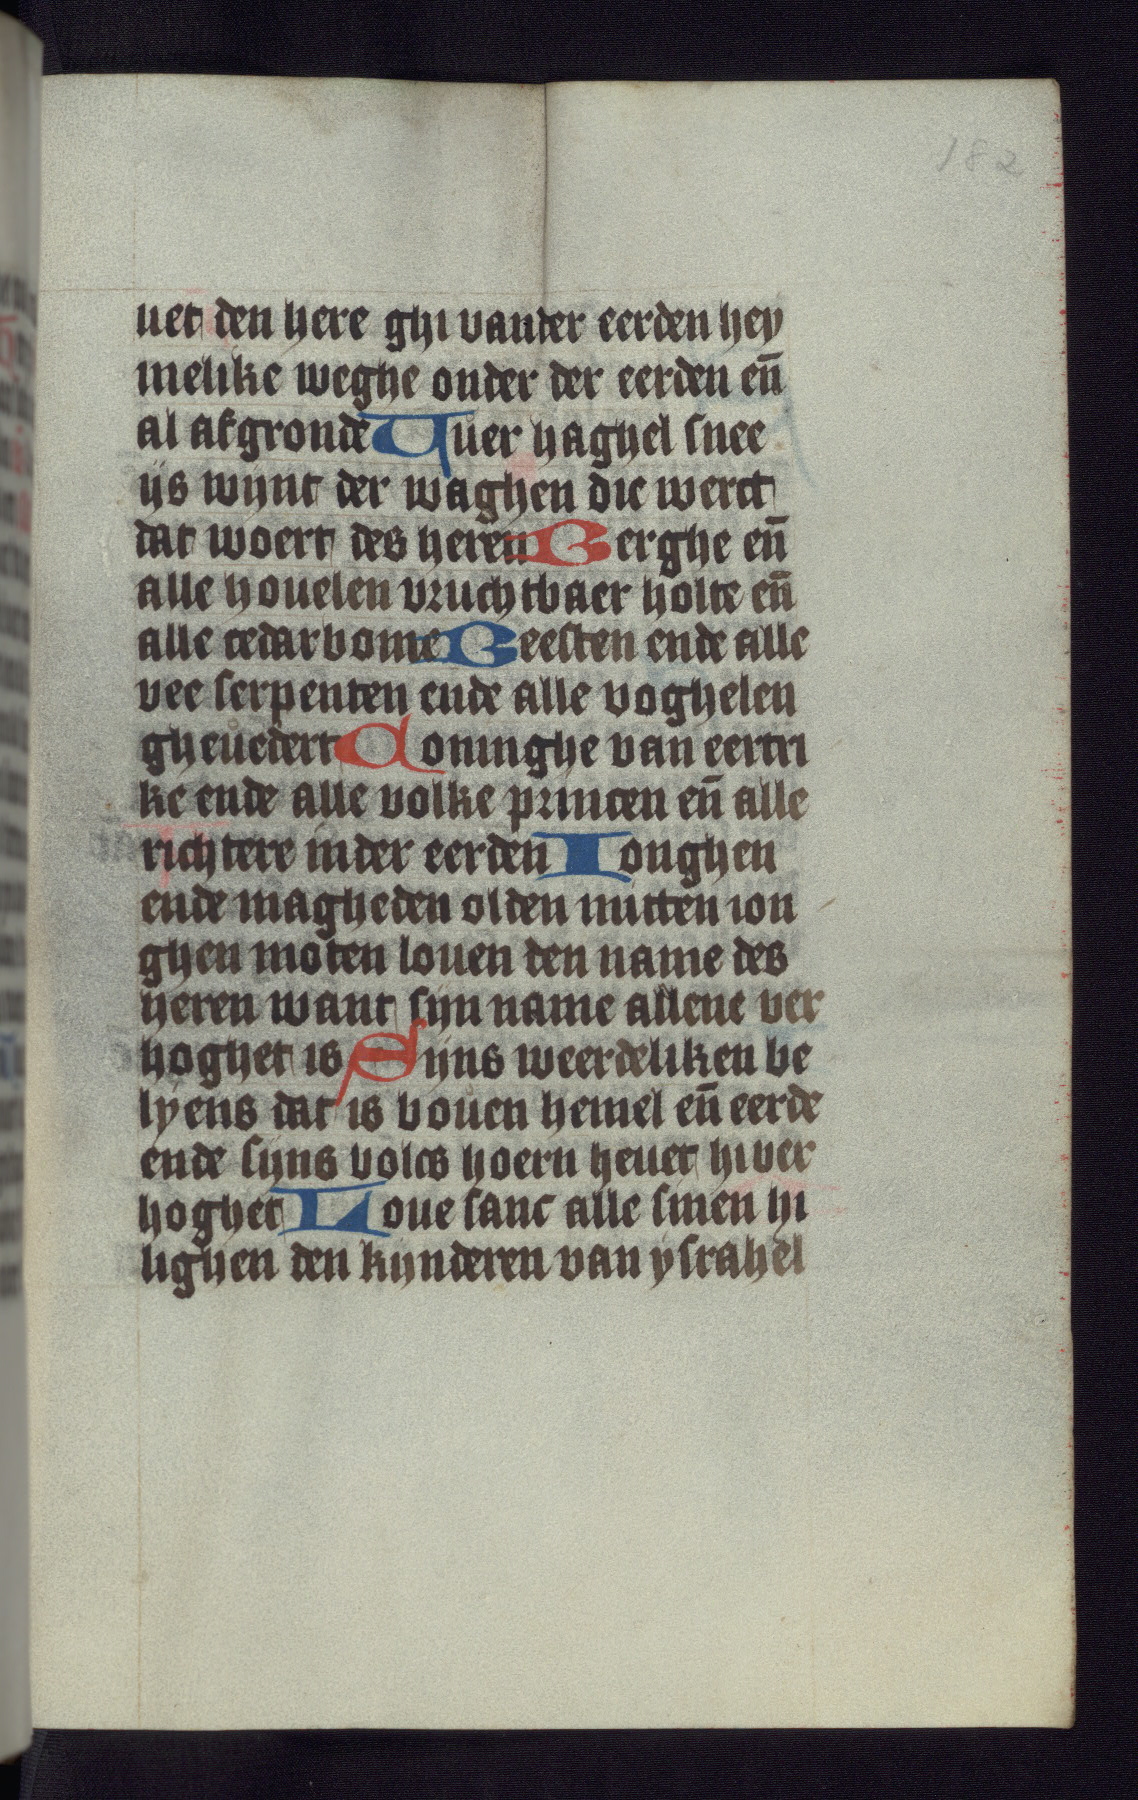 182
uet den here ghi vander eerden hey
melike weghe onder der eerden en̄
al afgronde Vuer haghel snee
ijs wijnt der waghen die werct
dat woert des heren Berghe en̄
alle houelen vruchtbaer holte en̄
alle cedarbome Beesten ende alle
vee serpenten ende alle voghelen
gheuedert Coninghe van eertri
ke ende alle volke princen en̄ alle
richtere inder eerden Ionghen
ende magheden olden mitten ion
ghen moten louen den name des
heren want sijn name allene ver
hoghet is Sijns weerdeliken be
lyens dat is bouen hemel en̄ eerde
ende sijns volcs hoern heuet hi ver
hoghet Loue sanc alle sinen hi
lighen den kijnderen van ysrahel